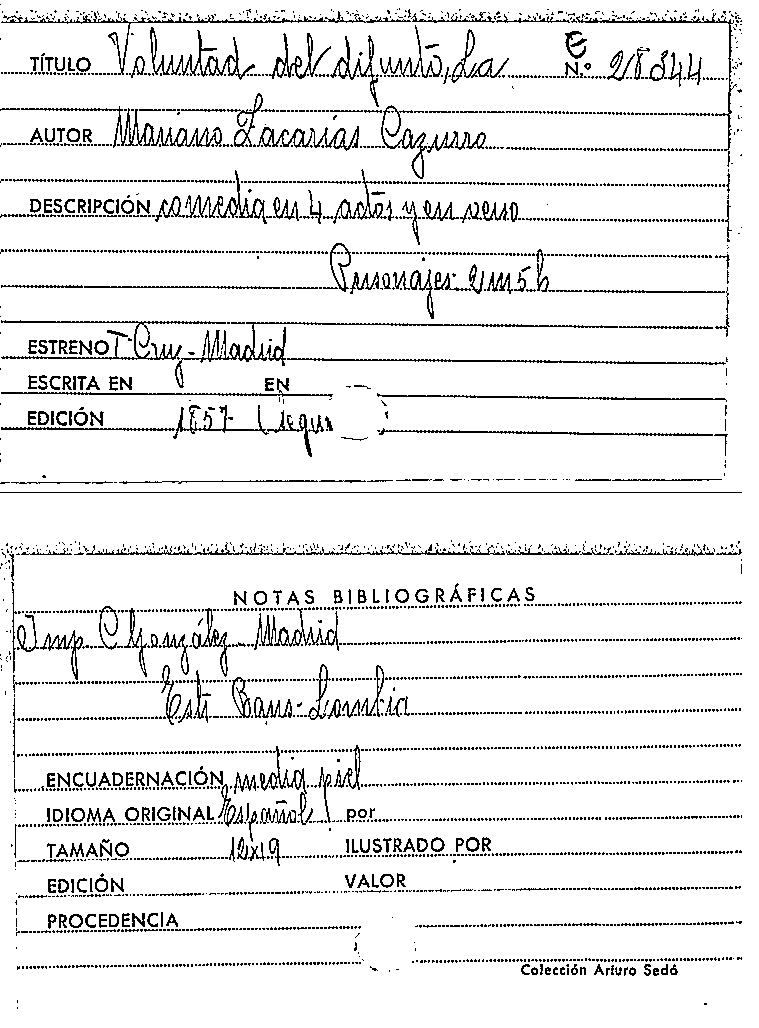 TÍTULO Voluntad del difunto, La E N.º 28344
AUTOR Mariano Zacarías Cazurro
DESCRIPCIÓN comedia en 4 actos y en verso
Personajes 2m5h
ESTRENO T Cruz - Madrid
ESCRITA EN EN
EDICIÓN 1857 (
NOTAS BIBLIOGRÁFICAS
Imp C González Madrid
Est Baus-Lombia
ENCUADERNACIÓN media piel
IDIOMA ORIGINAL Español por
TAMAÑO 12x19 ILUSTRADO POR
EDICIÓN VALOR
PROCEDENCIA
Colección Arturo Sedó